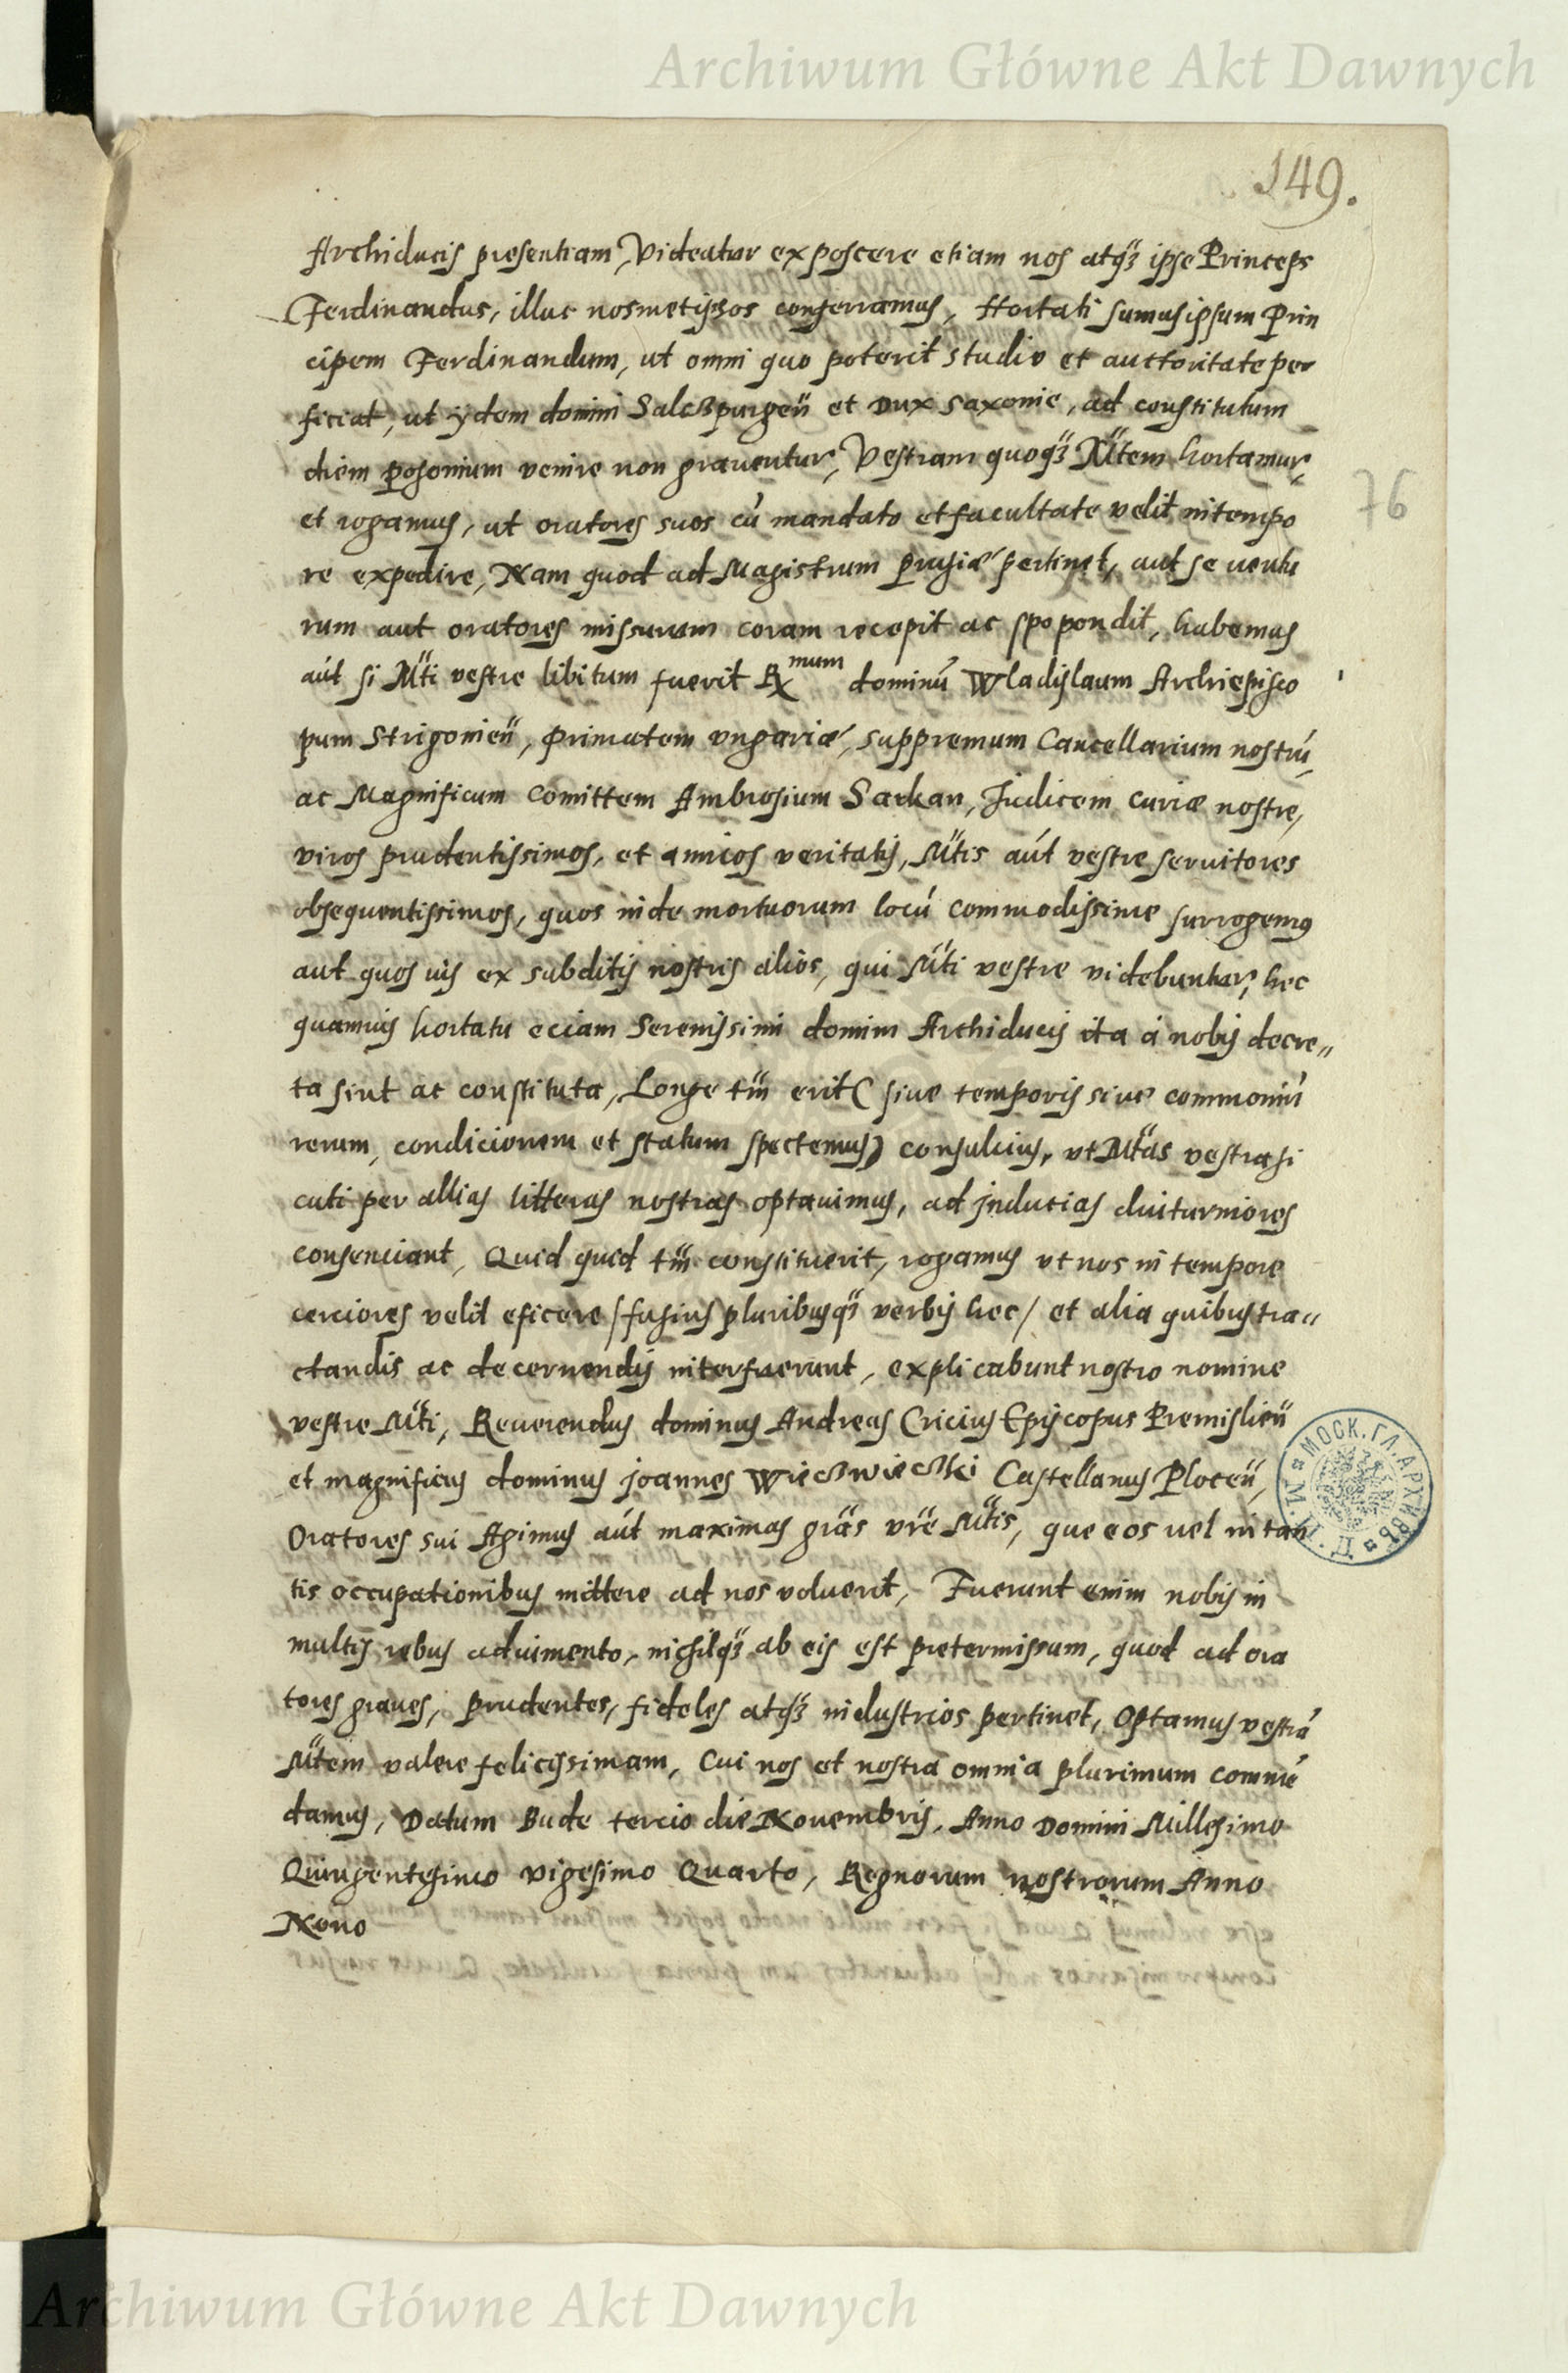 Archiwum Główne Akt Dawnych
149.
Archiducis presentiam, Videatur exposcere etiam nos atq3 ipse Princeps
Ferdinandus, illuc nosmetipsos conferramus, Hortati sumus ipsum Prin
cipem Ferdinandum, ut omni quo poterit studio et auctoritate per
ficiat, ut ijdem domini Salczpurgeñ et Dux Saxonie, ad constitutum
diem posonium venire non graventur, Vestram quoq3 Mtem hortamur,
et rogamus, ut oratores suos cu mandato et facultate velit in tempo
re expedire, Nam quod ad Magistrum prusiæ pertinet, aut se ventu
rum aut oratores missurum coram recepit ac spopondit, habemus
aut si Mti vestre libitum fuerit Rmum dominu Wladislaum Archiepisco
pum Strigonieñ, primatem ungariæ, suppremum Cancellarium nostru,
ac Magnificum Comittem Ambrosium Sarkan, Judicem curiæ nostre,
viros prudentissimos, et amicos veritatis, Mtis aut vestre servitores
obsequentissimos, quos in de mortuorum locu commodissime surrogemus
aut quos vis ex subditis nostris alios, qui Mti vestre videbuntur, hec
quamvis hortatu eciam Serenissimi domini Archiducis ita a nobis decre„
ta sint ac constituta, Longe tñ erit (sive temporis sive communiu
rerum, condicionem et statum spectemus) consulcius, ut Mtas vestra si
cuti per allias litteras nostras optavimus, ad inducias diuturniores
consenciant, Quid quid tñ constituerit, rogamus ut nos in tempore
cerciores velit eficere / fusius pluribusq3 verbis hec / et alia quibus tra„
ctandis ac decernendis interfuerunt, explicabunt nostro nomine
vestre Mti, Reverendus dominus Andreas Cricius Episcopus Premislieñ
et magnificus dominus joannes Wieczwieczki Castellanus Ploceñ,
Oratores sui Agimus aut maximas gras vre Mtis, que eos vel in tan
tis occupationibus mittere ad nos voluerit, Fuerunt enim nobis in
multis rebus adiumento, nichilq3 ab eis est pretermissum, quod ad ora
tores graves, prudentes, fideles atq3 industrios pertinet, Optamus vestra
Mtem valere felicissimam, Cui nos et nostra omnia plurimum comme
damus, Datum Bude tercio die Novembris, Anno Domini Millesimo
Quingentesimo vigesimo Quarto, Regnorum nostrorum Anno
Nono
76
МОСК. ГЛ. АРХИВЪ
М. И. Д.
Archiwum Główne Akt Dawnych